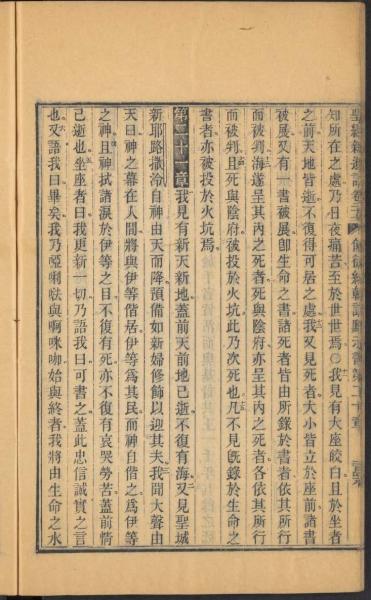 知所在之處乃日夜痛苦至於世世焉〇我見有大座皎白且於坐者
之前天地皆逝不復得可居之處我又見死者大小皆立於座前諸書
被展又有一書被展卽生命之書諸死者皆由所錄於書者依其所行
而被判海遂呈其內之死者死與陰府亦呈其內之死者各依其所行
而被判且死與陰府彼投於火坑此乃次死也凡不見旣錄於生命之
書者亦被投於火坑焉
第二十一章我見有新天新地蓋前天前地已逝不復有海又見聖城
新耶路撒冷自神由天而降預備如新婦修飾以迎其夫我聞大聲由
天曰神之幕在人間將與伊等偕居伊等爲其民而神自偕之爲伊等
之神且神拭諸淚於伊等之目不復有死亦不復有哀哭勞苦蓋前情
己逝也坐座者曰我更新一切乃語我曰可書之蓋此忠信誠實之言
也又語我曰畢矣我乃啞唎咓與啊咪咖始與終者我將由生命之水